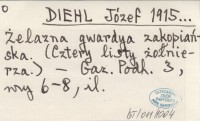 O
DIEHL Józef 1915...
Żelazna gwardya zakopiań-
ska. (Cztery listy żołnie-
rza.) — Gaz. Podh. 3,
nry 6-8, il.